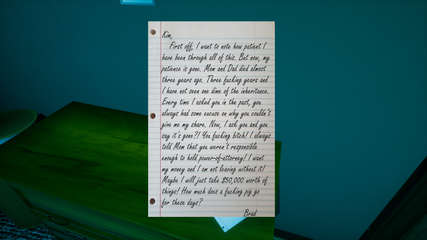 Kim,
First off, I want to note how patient I
have been through all of this. But now, my
patience is gone. Mom and Dad died almost
three years ago. Three fucking years and
I have not seen one dime of the inheritance.
Every time I asked you in the past, you
always had some excuse on why you couldn't
give me my share. Now, I ask you and you
say it's gone?! You fucking bitch! I always
told Mom that you weren't responsible
enough to hold power-of-attorney! I want
my money and I am not leaving without it!
Maybe I will just take $50,000 worth of
things! How much does a fucking pig go
for these days?
Brad